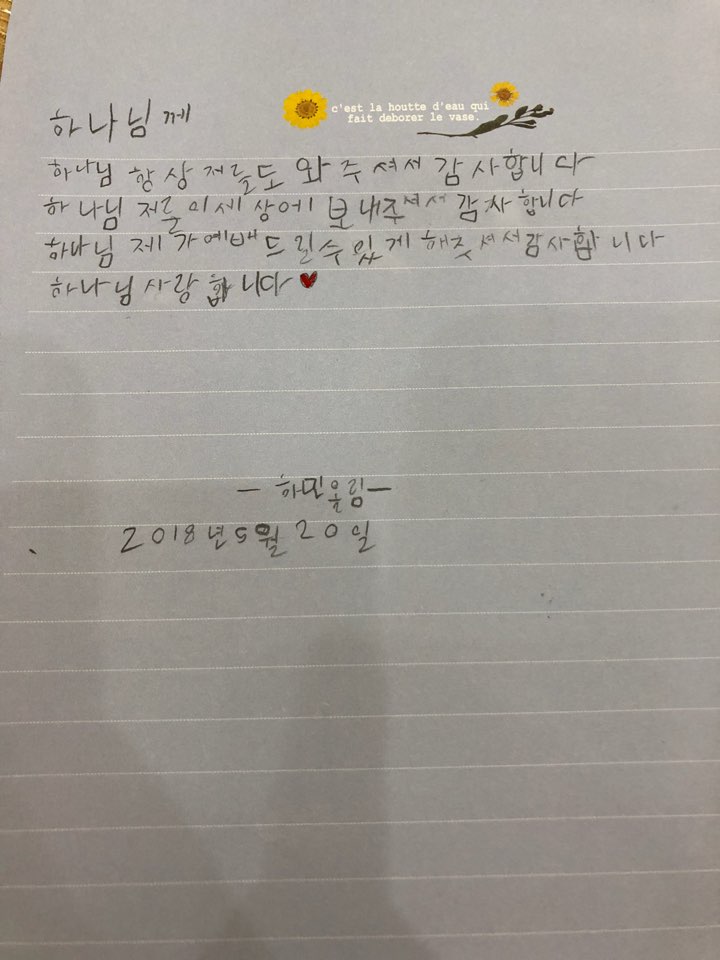 하나님께
c'est la houtte d'eau qui
fait deborer le vase.
하나님 항상 저를도 와 주 셔서 감 사합니다
하 나님 저를 이 세 상에 보 내주셔서 감 사 합니다
하나님 제 가 예배 드 릴 수 있 게 해주 셔 서 감 사 합 니 다
하나님 사랑 합 니다 ♥
— 하민올림—
2018년 5월 20일